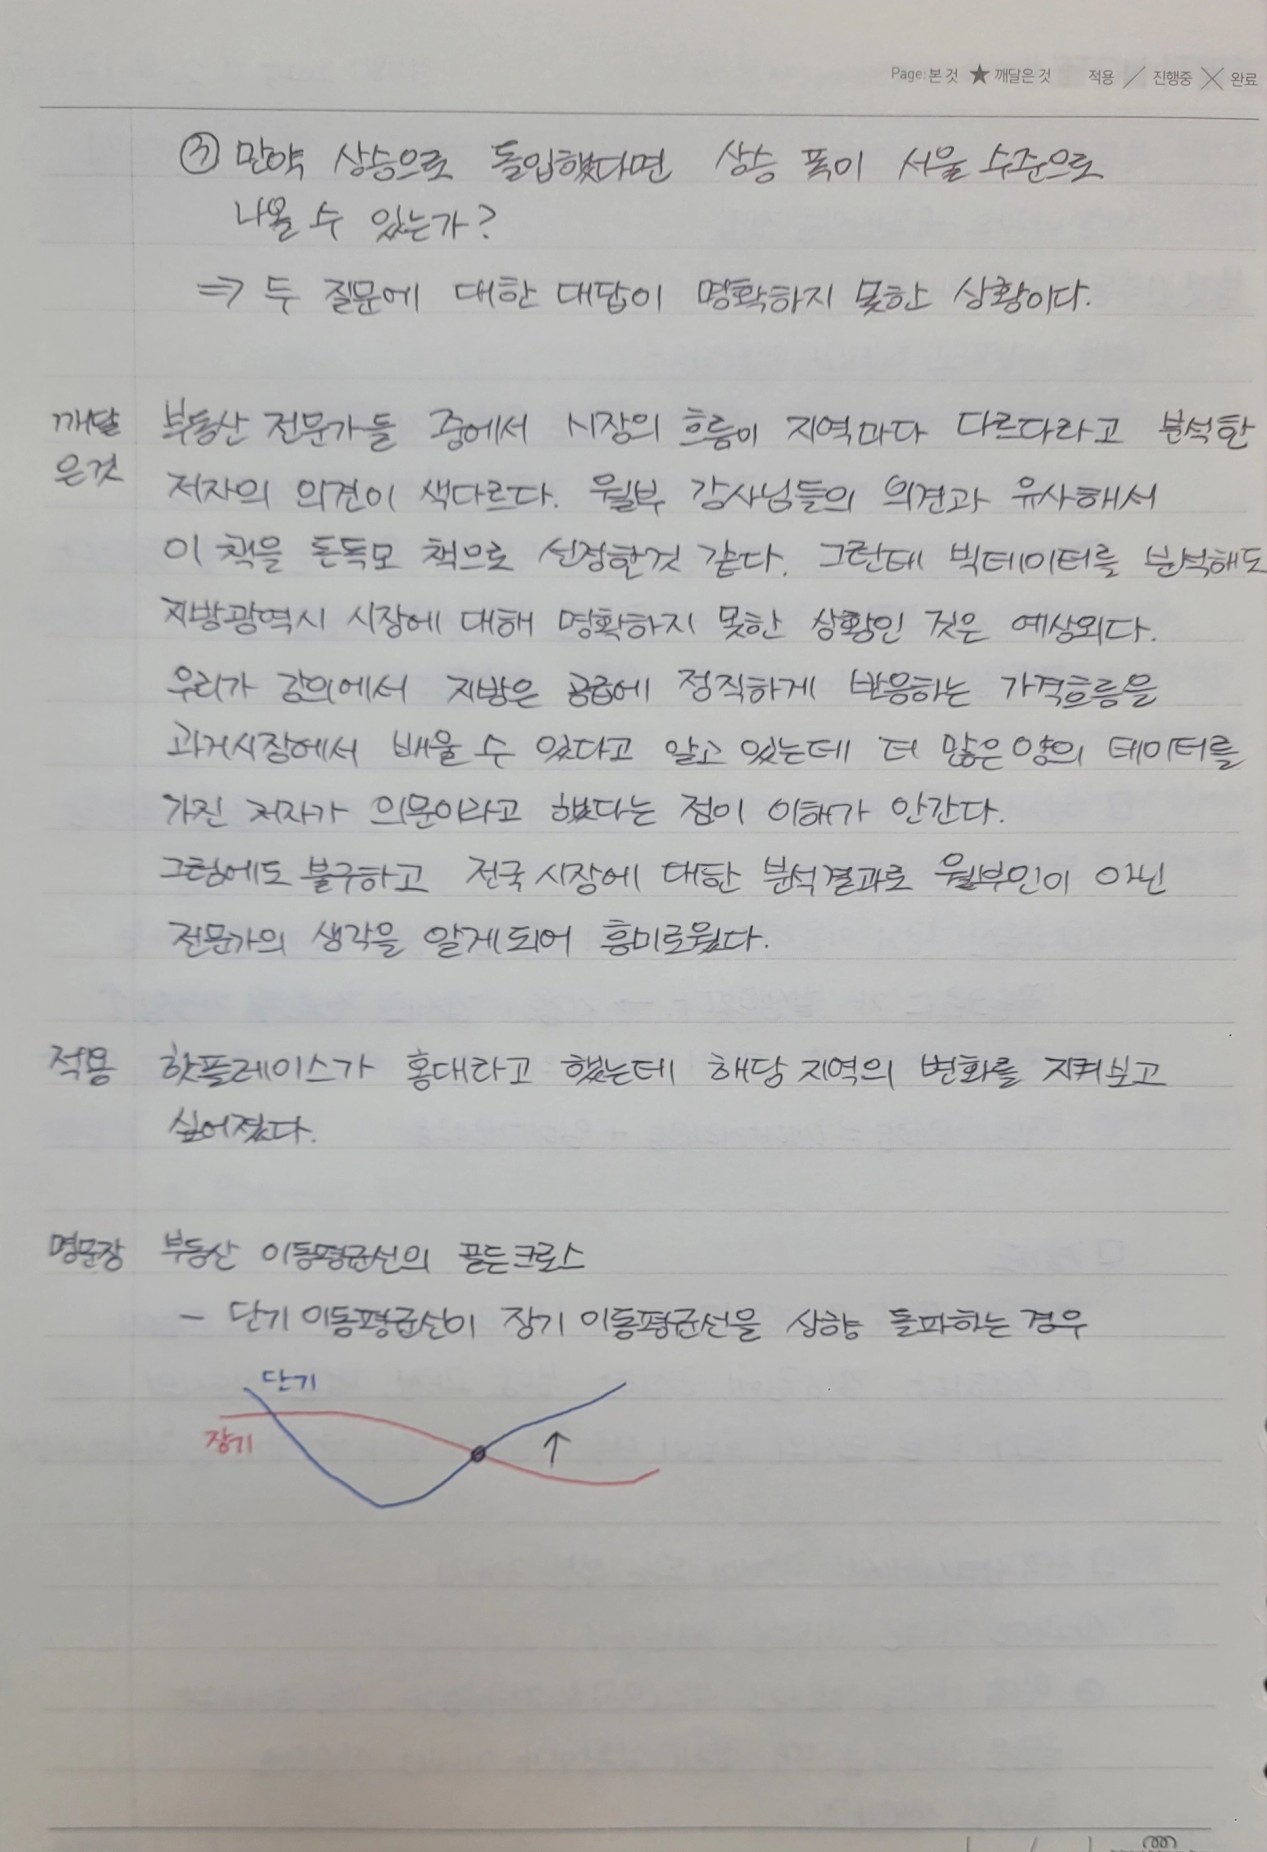 Page: 본 것 ★ 깨달은 것 적용 / 진행중 ╳ 완료
만약 상승으로 돌입했다면 상승 폭이 서울 수준으로
나올 수 있는가?
⇒ 두 질문에 대한 대답이 명확하지 못한 상황이다.
깨달 부동산 전문가들 중에서 시장의 흐름이 지역마다 다르다라고 분석한
은것 저자의 의견이 색다르다. 월부 강사님들의 의견과 유사해서
이 책을 돈독모 책으로 선정한것 같다. 그런데 빅데이터를 분석해도
지방광역시 시장에 대해 명확하지 못한 상황인 것은 예상외다.
우리가 강의에서 지방은 공급에 정직하게 반응하는 가격흐름을
과거시장에서 배울 수 있다고 알고 있는데 더 많은 양의 데이터를
가진 저자가 의문이라고 했다는 점이 이해가 안간다.
그럼에도 불구하고 전국 시장에 대한 분석결과로 월부인이 아닌
전문가의 생각을 알게되어 흥미로웠다.
적용 핫플레이스가 홍대라고 했는데 해당 지역의 변화를 지켜보고
싶어졌다.
명문장 부동산 이동평균선의 골든크로스
- 단기 이동평균선이 장기 이동평균선을 상향 돌파하는 경우
단기
장기